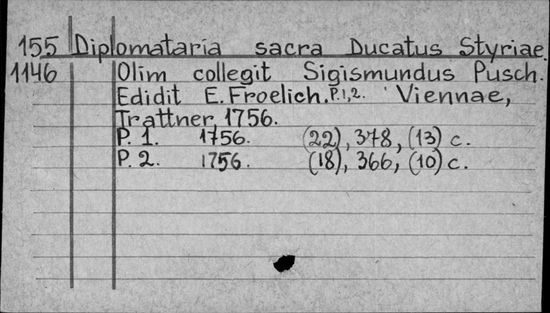 155 Diplomataria sacra Ducatus Styriae.
1146 Olim collegit Sigismundus Pusch.
Edidit E. Froelich. P. 1, 2. Viennae,
Trattner, 1756.
P. 1. 1756. (22), 378, (13) c.
P. 2. 1756. (18), 366, (10) c.